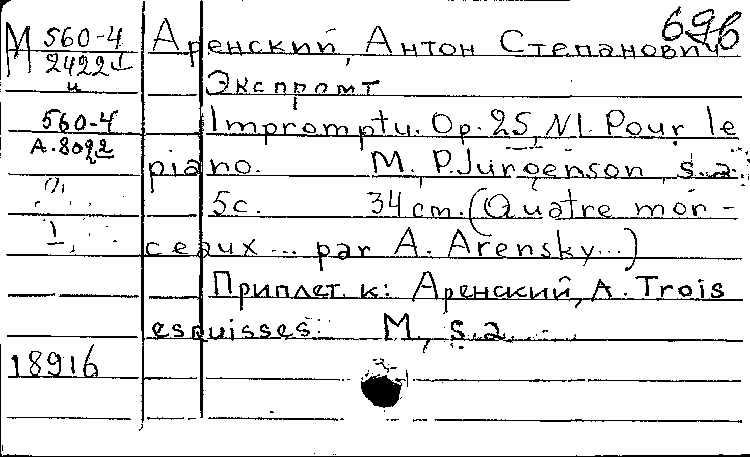 696
М 560-4 Аренский, Антон Степанович
2422 I
и Экспромт
560-4 Impromptu. Op. 25, N1. Pour le
А. 8092 piano. M., P. Jurgenson, s.a.
5с. 34 cm. (Quatre mor-
ceaux ... par A. Arensky...)
Приплет. к: Аренский, А. Trois
esquisses. M., s.a.
18916